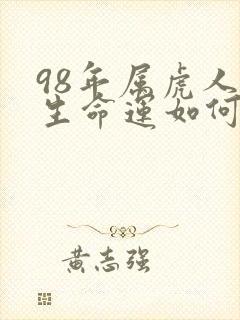 98年属虎人
生命运如何
黄志强